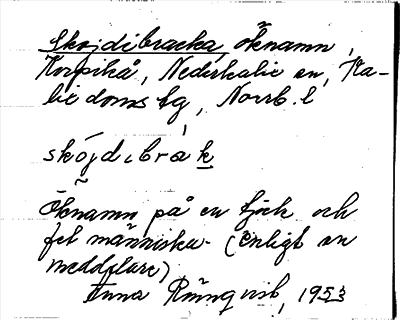 Skojdibracka, öknamn,
Korpikå, Nederkalix sn, Ka-
lix doms. tg, Norrb. l
skójdıbrák
Öknamn på en tjock och
fet människa. (enligt en
meddelare)
Anna Rönnqvist, 1953